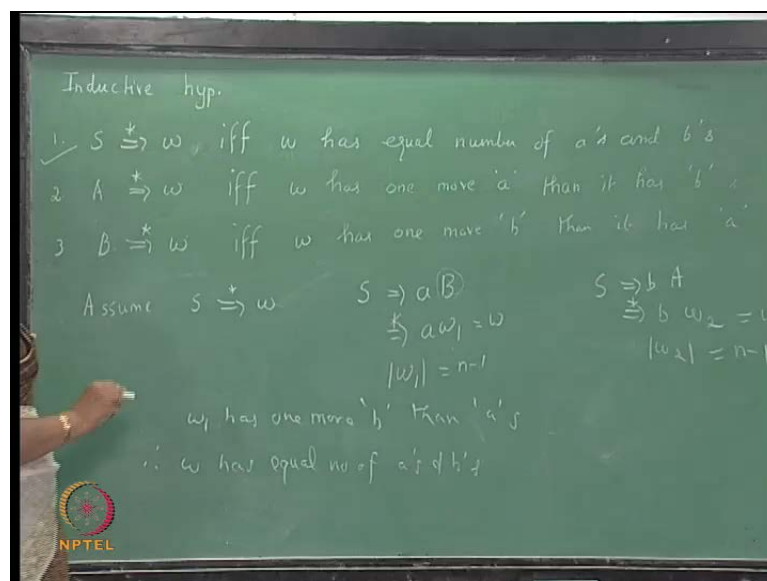 Inductive hyp.
1. S *⇒ w iff w has equal number of a's and b's
2 A *⇒ w iff w has one move 'a' than it has 'b'
3 B *⇒ w iff w has one move 'b' than it has 'a'
Assume S *⇒ w S ⇒ aB S ⇒ b A
*⇒ aw₁ = w *⇒ b w₂ =
|w₁| = n-1 |w₂| = n-1
w₁ has one more 'b' than 'a's
∴ w has equal no of a's & b's
NPTEL